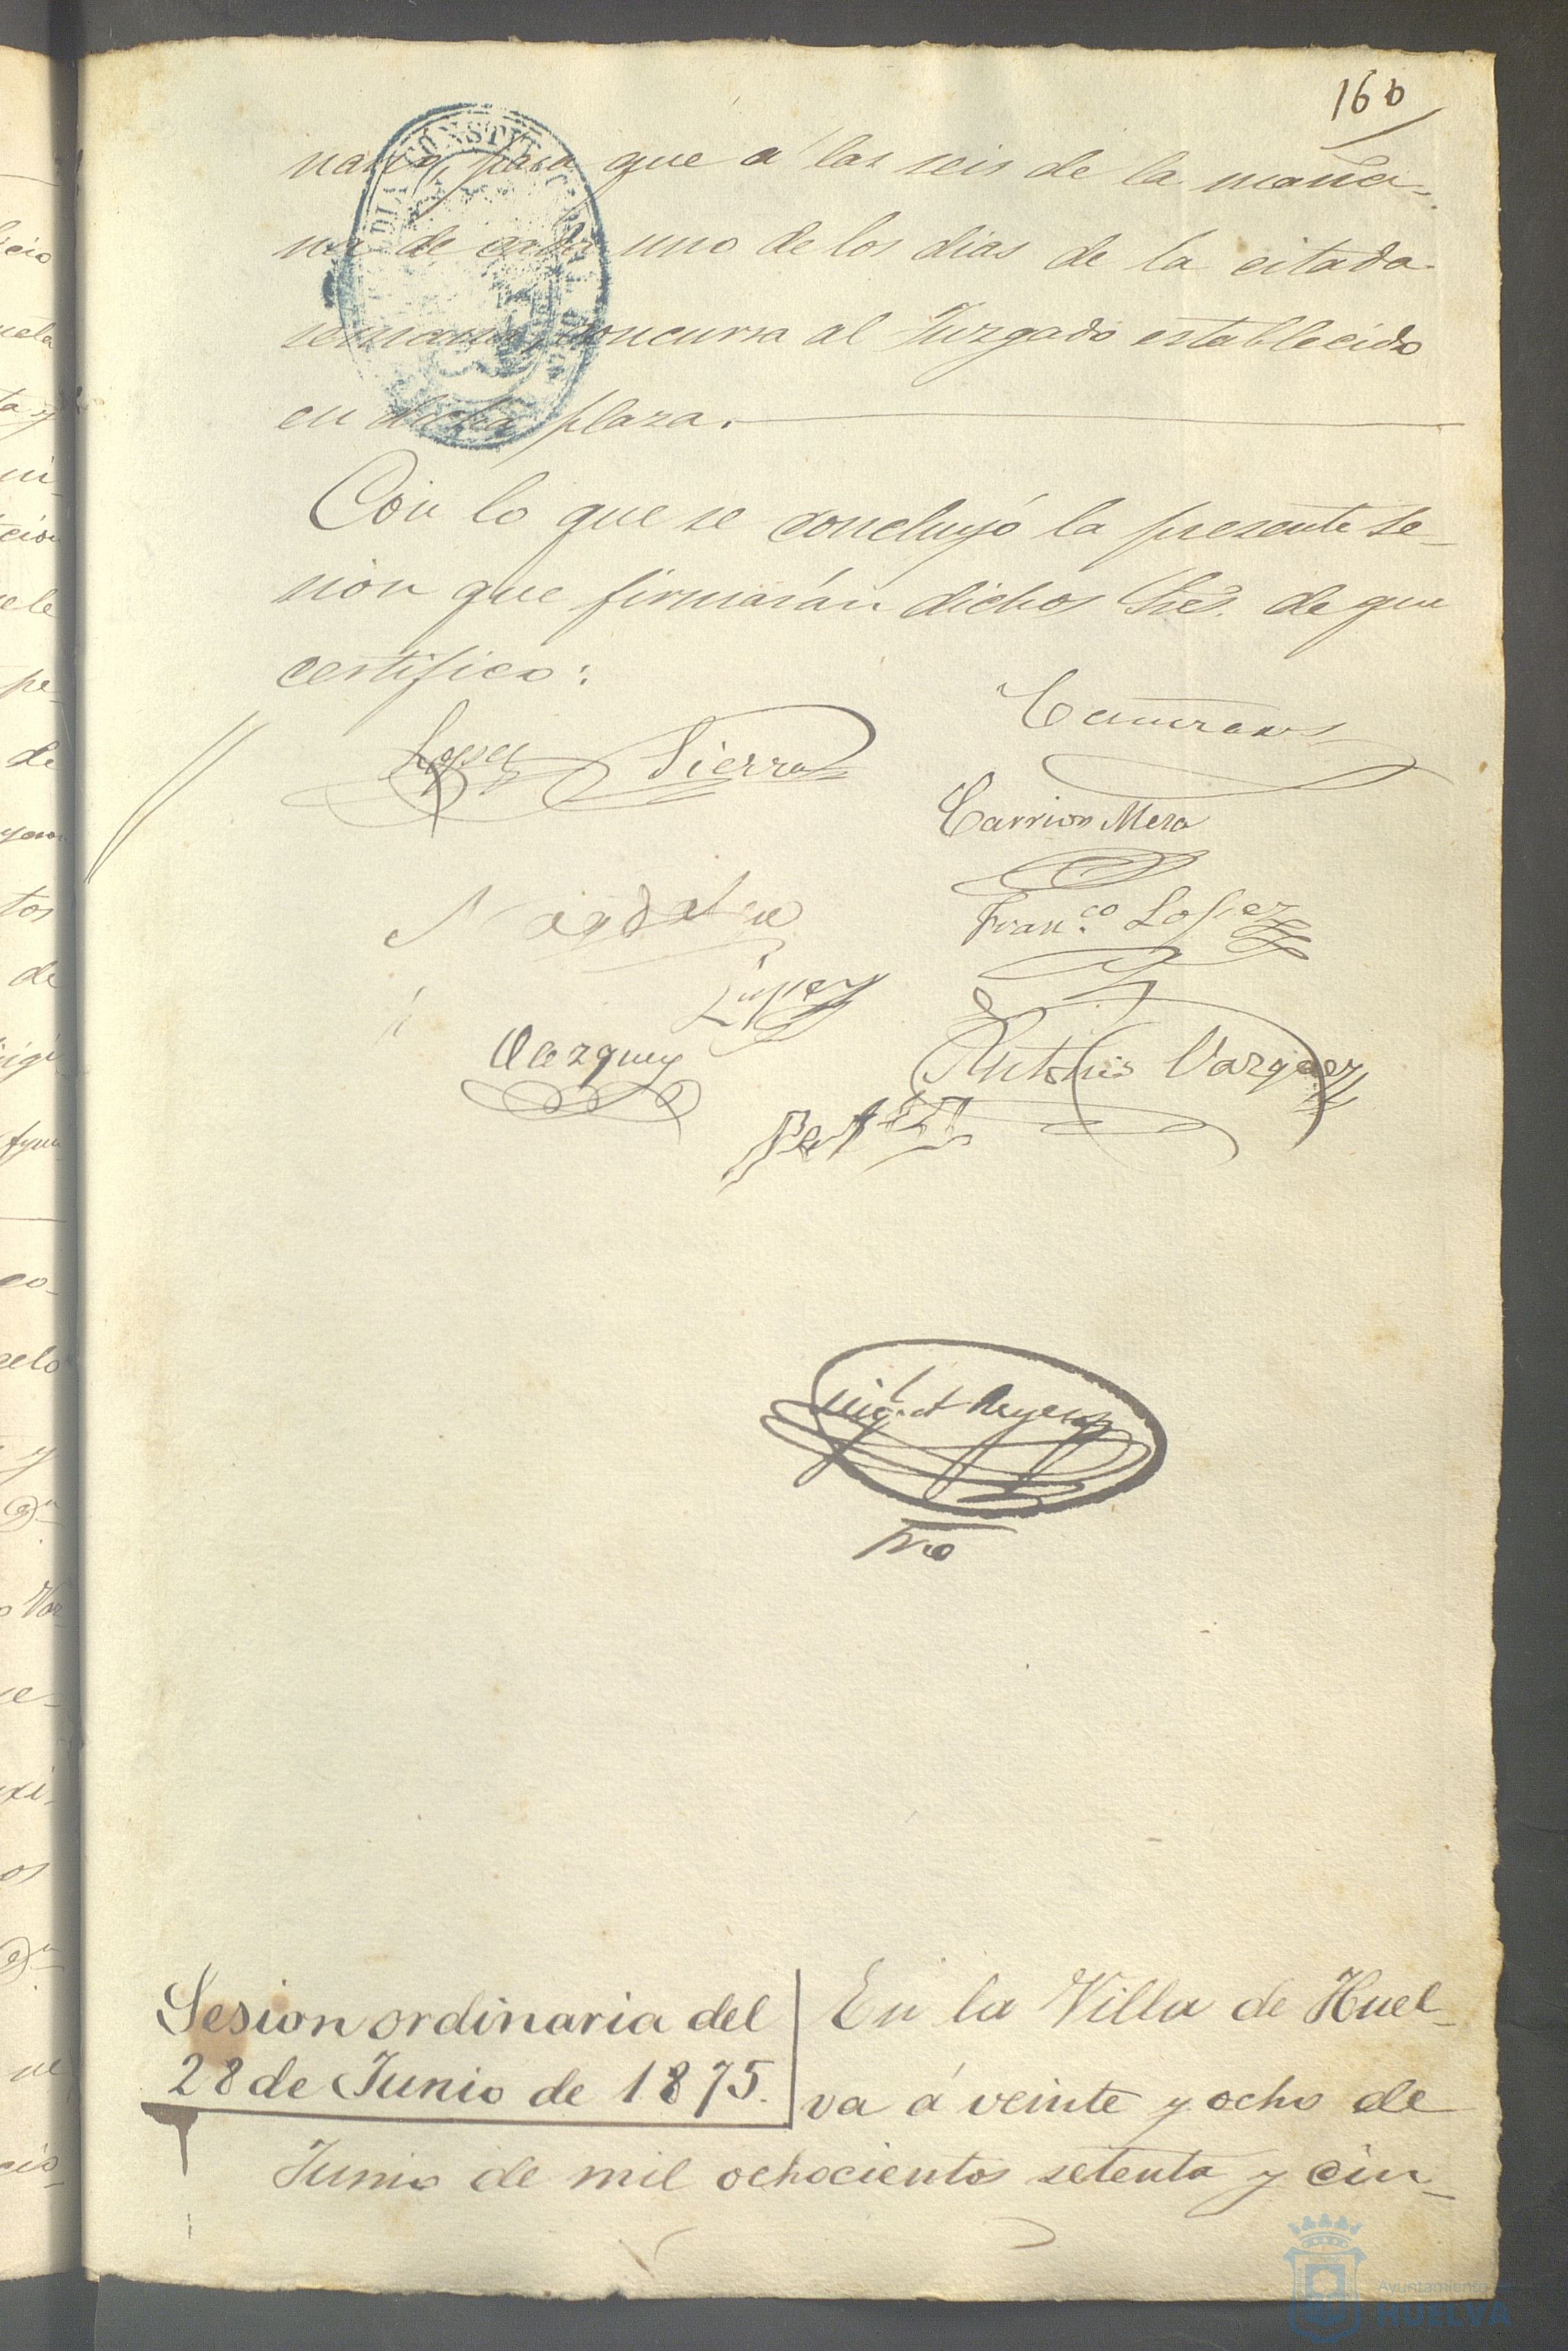 160
para que á las seis de la maña-
na de cada uno de los dias de la citada
semana, concurra al Juzgado establecido
en dicha plaza.
Con lo que se concluyó la presente se-
sion que firmarán dichos Sres. de que
certifico:
Lopez Sierra
Carrion Mera
Franco. Lopez
Lopez
Vazquez
Antonio Vazquez
Srio
Sesion ordinaria del
28 de Junio de 1875.
En la Villa de Huel-
va á veinte y ocho de
Junio de mil ochocientos setenta y cin-
Ayuntamiento de
HUELVA